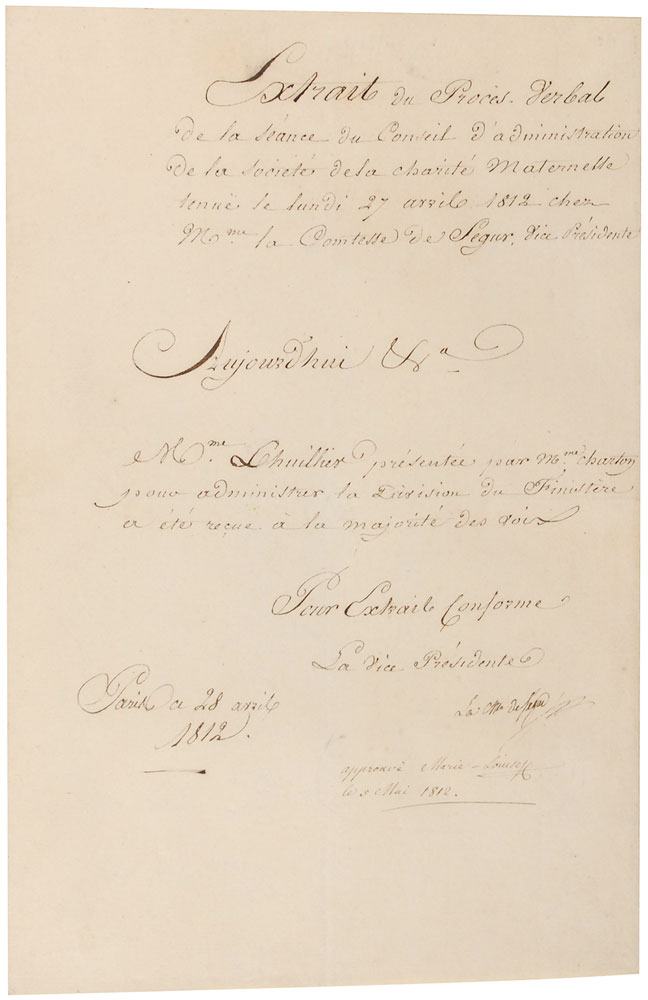 Extrait du Procès-Verbal
de la séance du Conseil d'administration
de la société de la charité Maternelle
tenue le lundi 27 avril 1812 chez
Mme la Comtesse de Segur, Vice Présidente
Aujourd'hui &a
Mme Lhuillier présentée par Mme Charton
pour administrer la Division du Finistère
a été reçue à la majorité des voix
Pour Extrait Conforme
La Vice Présidente
Paris ce 28 avril
1812.
La Ctsse de Segur
approuvé Marie-Louise
le Mai 1812.